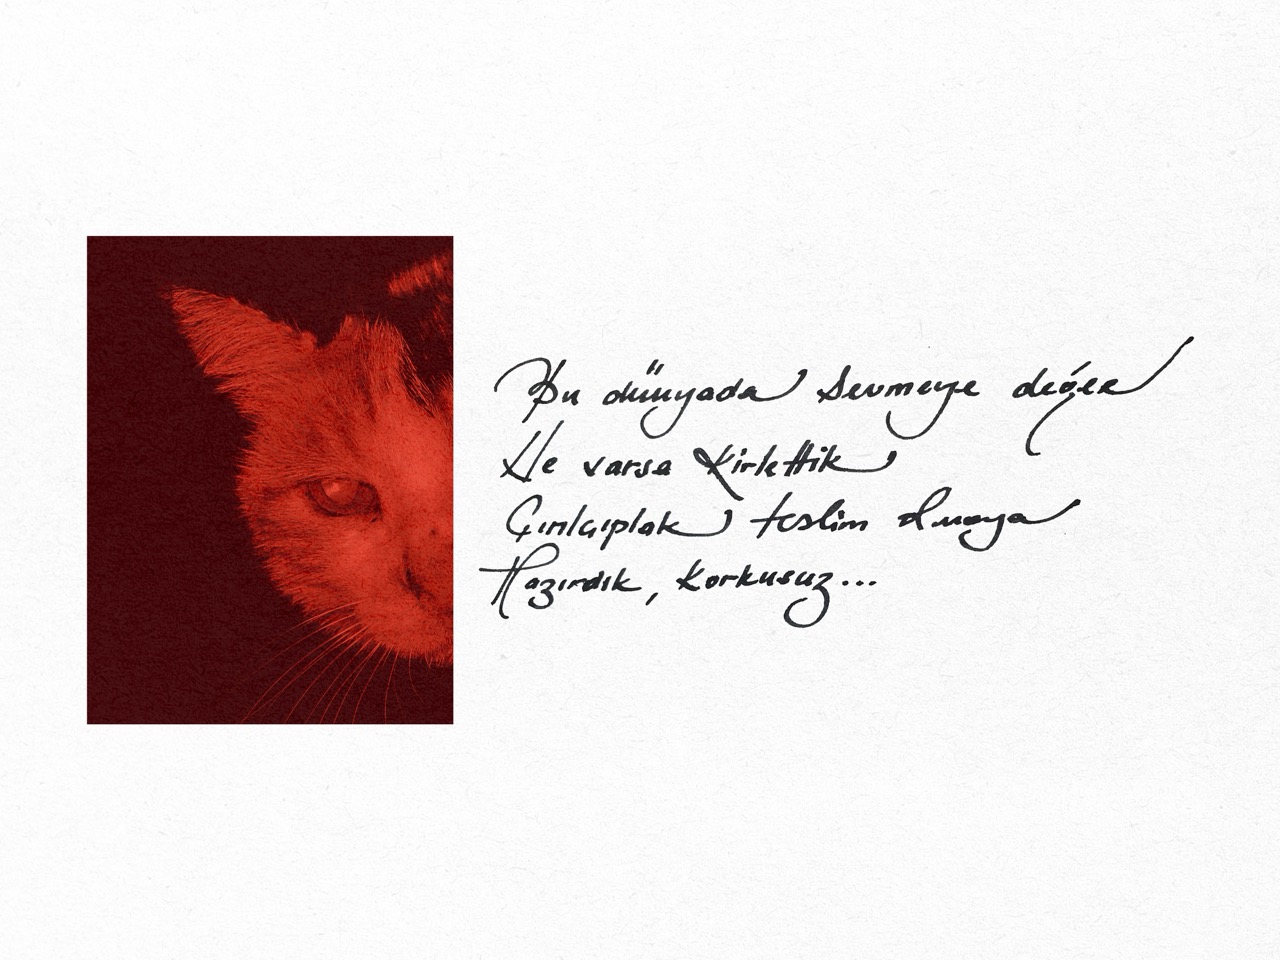 Bu dünyada Sevmeye değer
Ne varsa Kirlettik
Çırılçıplak teslim olmaya
Hazırdık, Korkusuz...